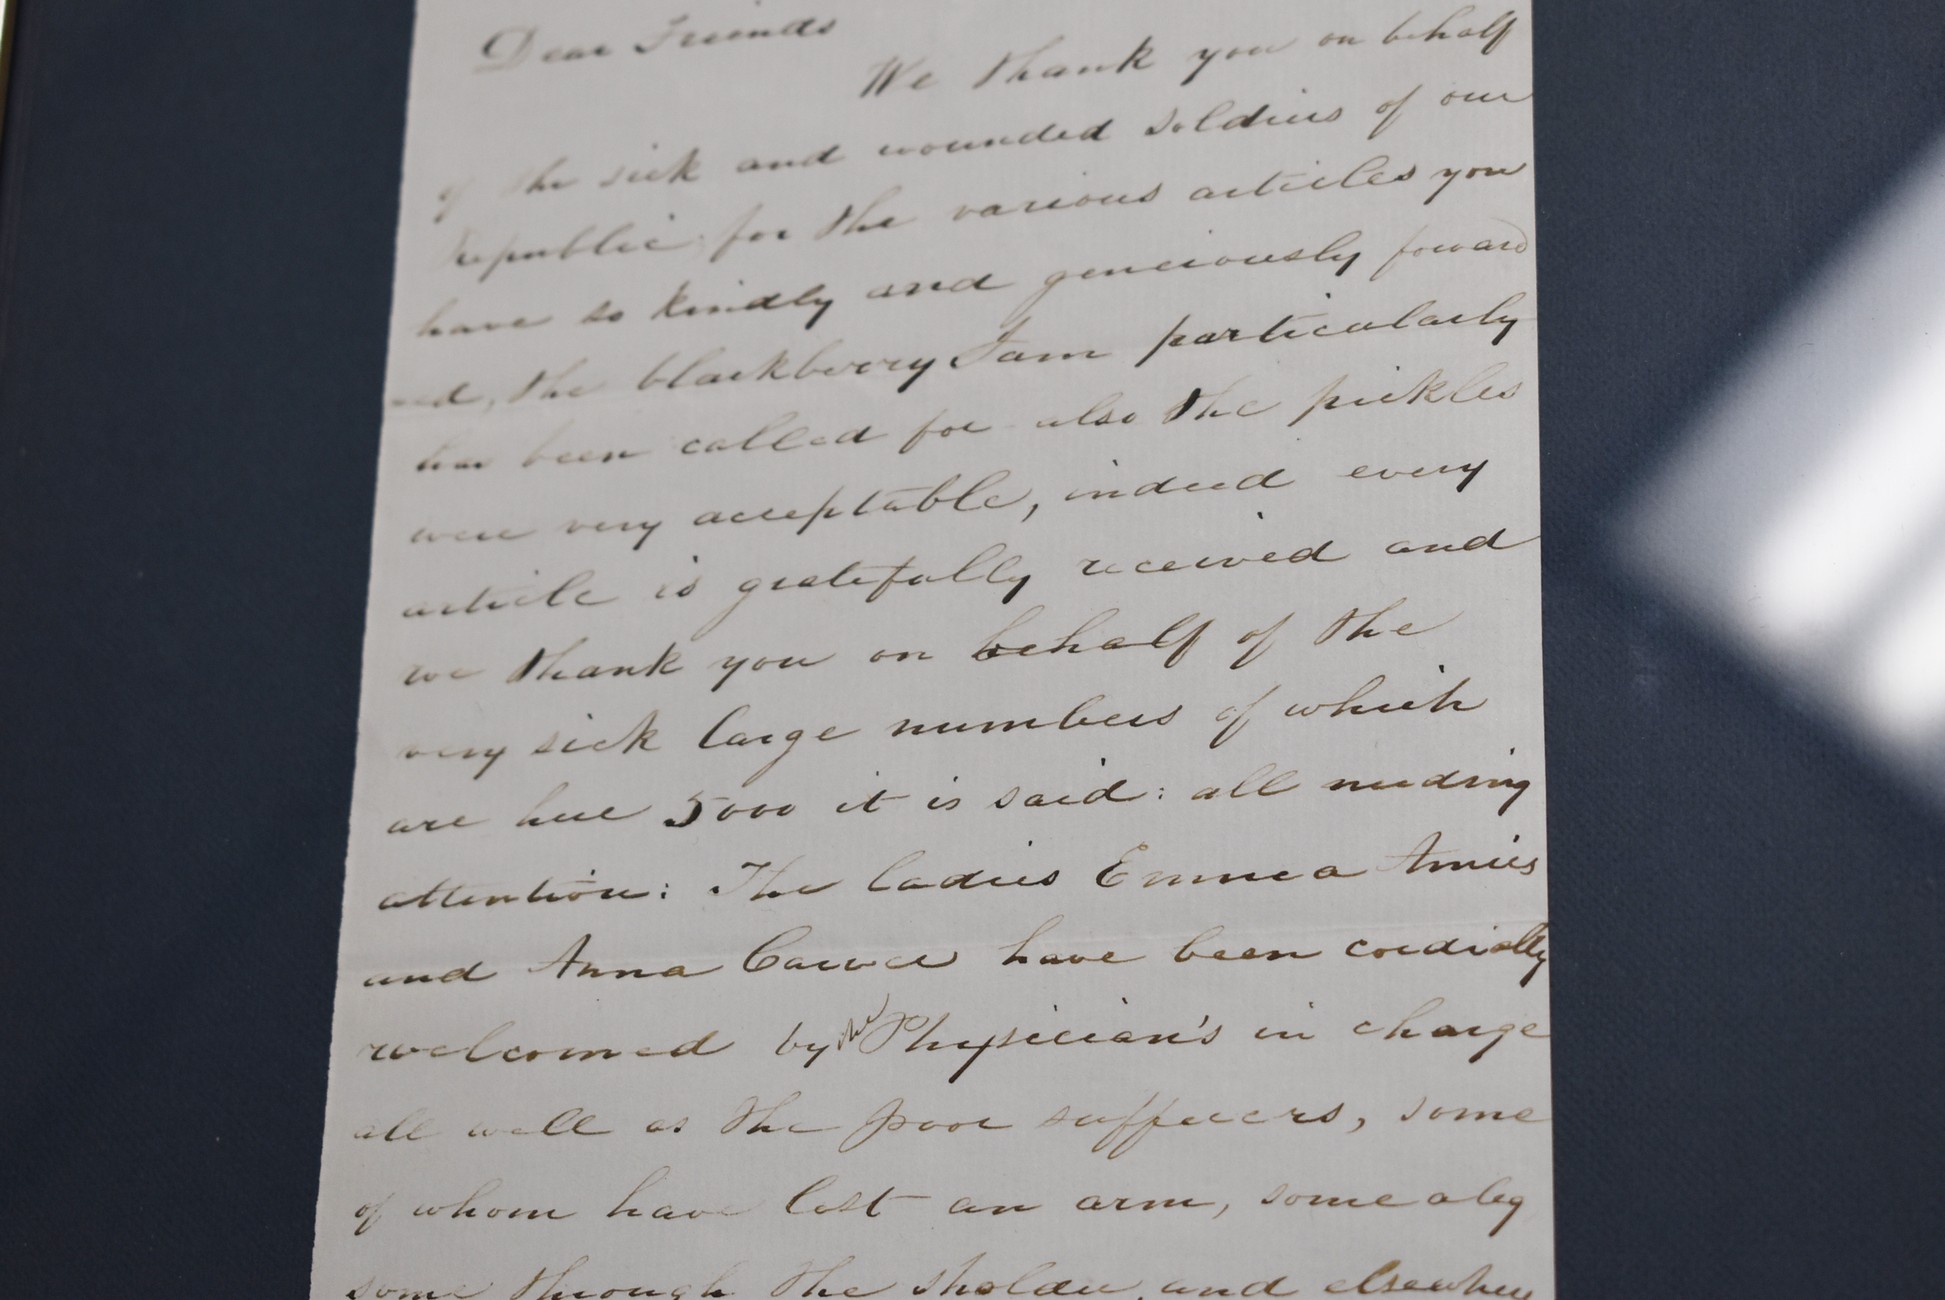 Dear Friends
We thank you on behalf
of the sick and wounded soldiers of our
Republic for the various articles you
have so kindly and generiously foward
ed, the blackberry Jam particularly
has been called for also the pickles
were very acceptable, indeed every
article is gratefully received and
we thank you on behalf of the
very sick large numbers of which
are here 5000 it is said: all needing
attention: The ladies Emmea Amies
and Anna Carver have been cordially
welcomed by the Physician's in charge
all well as the poor sufferers, some
of whom have lost an arm, some a leg
some through the sholder, and elsewhere